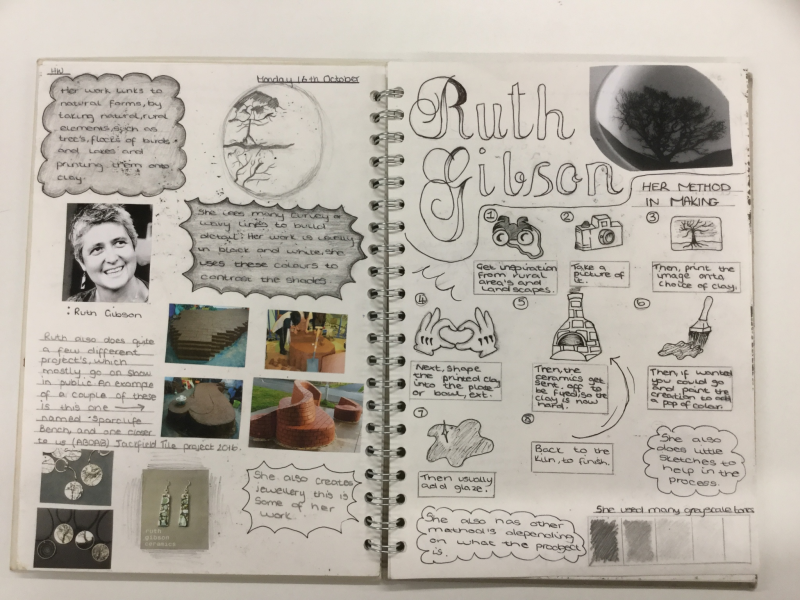 HW
Monday 16th October
Her work links to
natural forms, by
taking natural, rural
elements, such as
tree's, flocks of birds
and lakes and
printing them onto
clay.
She uses many curley or
wavy lines to build
detail. Her work is usually
in black and white, she
uses these colours to
contrast the shades.
: Ruth Gibson
Ruth also does quite
a few different
project's, which
mostly go on show
in public. An example
of a couple of these
is this one
named
Bench, and one closer
to us Jackfield Tile project 2016.
ruth
gibson
ceramics
She also creates
jewellery this is
some of her
work.
Ruth
Gibson
HER METHOD
IN MAKING
1
Get inspiration
from rural
area's and
landscapes.
2
Take a
picture of
it.
3
Then, print the
image onto
choice of clay.
4
Next, shape
the printed clay
into the plate
or bowl, ext.
5
Then, the
ceramics get
sent off to
be fired, so the
clay is now
hard.
6
Then, if wanted
you could go
and paint the
creation to add
a pop of colour.
7
Then usually
add glaze.
8
Back to the
kiln, to finish.
She also
does little
sketches to
help in the
process.
She also has other
method's depending
on what the product
is.
She used many greyscale tones